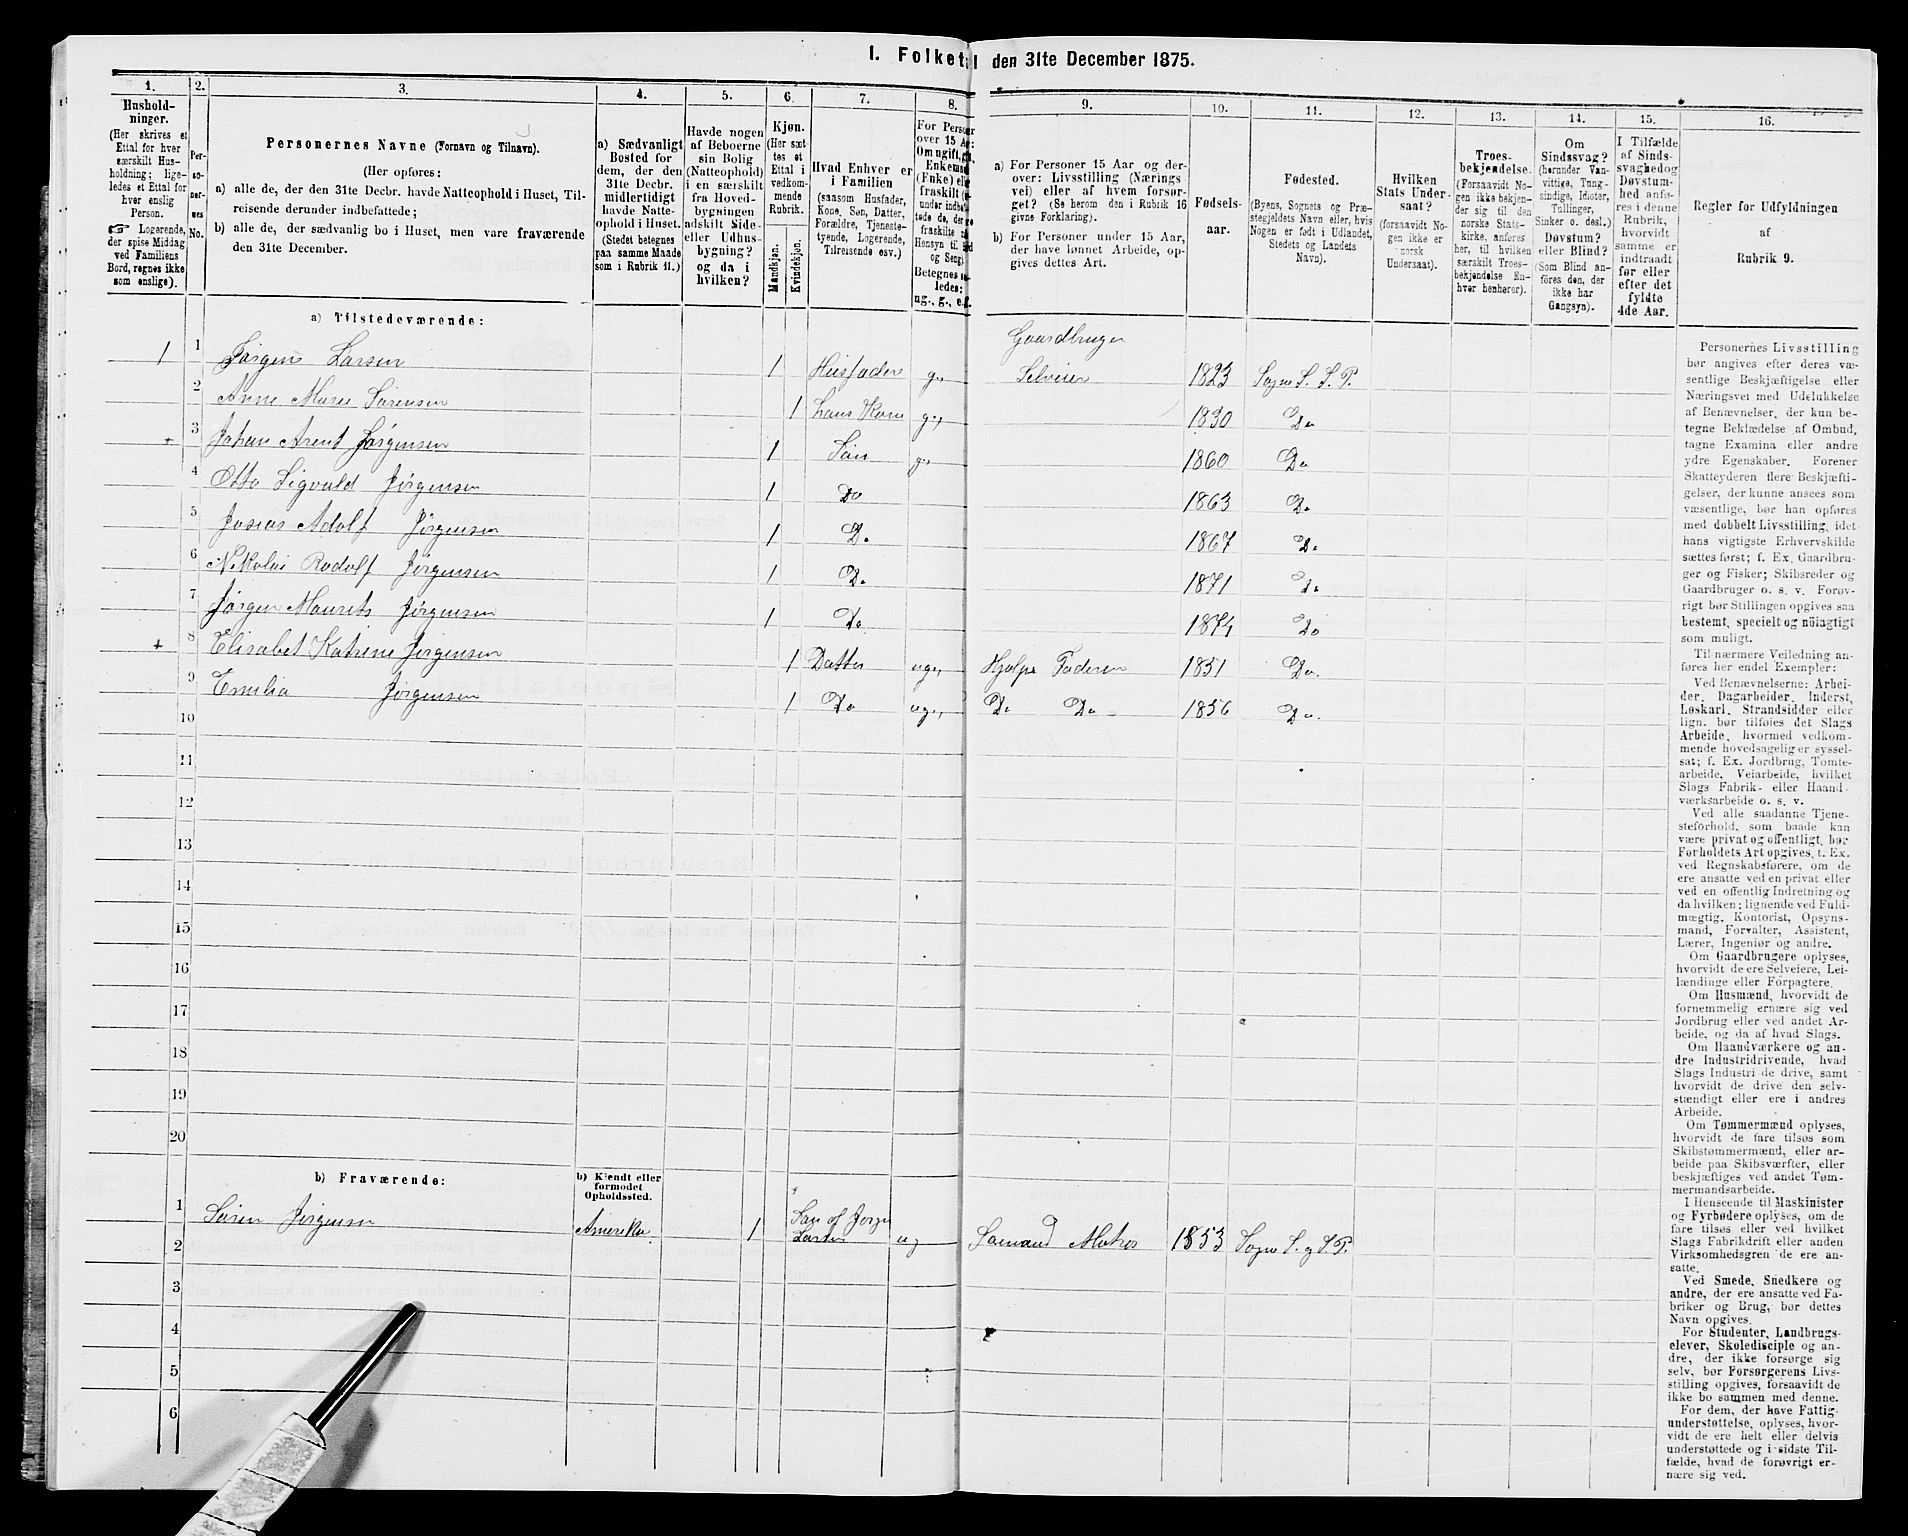 I. Folketal den 31te December 1875.
1. 2. 3. 4. 5. 6. 7. 8. 9. 10. 11. 12. 13. 14. 15. 16.
Hushold-
ninger.
(Her skrives et
Ettal for hver
særskilt Hus-
holdning; lige-
ledes et Ettal for
hver enslig
Person.
Logerende,
der spise Middag
ved Familiens
Bord, regnes ikke
som enslige).
Per-
so-
ner-
nes
No.
Personernes Navne (Fornavn og Tilnavn).
(Her opføres:
a) alle de, der den 31te Decbr. havde Natteophold i Huset, Til-
reisende derunder indbefattede;
b) alle de, der sædvanlig bo i Huset, men vare fraværende
den 31te December.
a) Sædvanligt
Bosted for
dem, der den
31te Decbr.
midlertidigt
havde Natte-
ophold i Huset.
(Stedet betegnes
paa samme Maade
som i Rubrik 11.)
Havde nogen
af Beboerne
sin Bolig
(Natteophold)
i en særskilt
fra Hoved-
bygningen
adskilt Side-
eller Udhus-
bygning?
og da i
hvilken?
Kjøn.
(Her sæt-
tes et
Ettal i
vedkom-
mende
Rubrik.
Mandkjøn.
Kvindekjøn.
Hvad Enhver er
i Familien
(saasom Husfader,
Kone, Søn, Datter,
Forældre, Tjeneste-
tyende, Logerende,
Tilreisende osv.)
For Personer
over 15 Aar:
Om ugift, gift,
Enkemand
(Enke) eller
fraskilt
Betegnes saa-
ledes:
ug., g., e., f.
a) For Personer 15 Aar og der-
over: Livsstilling (Nærings
vei) eller af hvem forsør-
get? (Se herom den i Rubrik 16
givne Forklaring).
b) For Personer under 15 Aar,
der have lønnet Arbeide, op-
gives dettes Art.
Fødsels-
aar.
Fødested.
(Byens, Sognets og Præ-
stegjeldets Navn eller, hvis
Nogen er født i Udlandet,
Stedets og Landets
Navn).
Hvilken
Stats Under-
saat?
(forsaavidt No-
gen ikke er
norsk
Undersaat).
Troes-
bekjendelse.
(Forsaavidt No-
gen ikke bekjen-
der sig til den
norske Stats-
kirke, anføres
her, til hvilken
særskilt Troes-
bekjendelse En-
hver henhører).
Om
Sindssvag?
(herunder Van-
vittige, Tung-
sindige, Idioter,
Tullinger,
Sinker o. desl.)
Døvstum?
eller Blind?
(Som Blind an-
føres den, der
ikke har
Gangsyn).
I Tilfælde
af Sinds-
svaghed og
Døvstum-
hed anfø-
res i denne
Rubrik,
hvorvidt
samme er
indtraadt
før eller
efter det
fyldte
4de Aar.
Regler for Udfyldningen
af
Rubrik 9.
a) Tilstedeværende:
Gaardbruger
1 1 Jørgen Larsen 1 Husfader g., Selveier 1823 Sogne S. S. P.
2 Anne Marie Sørensen 1 hans Kone g., 1830 Do
+ 3 Johan Arent Jørgensen 1 Søn g., 1860 Do
4 Otto Sigvald Jørgensen 1 Do 1863 Do
5 Josias Adolf Jørgensen 1 Do 1867 Do
6 Nikolai Rodolf Jørgensen 1 Do 1871 Do
7 Jørgen Maurits Jørgensen 1 Do 1874 Do
+ 8 Elisabet Katrine Jørgensen 1 Datter ug., Hjælpe Faderen 1851 Do.
9 Emilia Jørgensen 1 Do ug., Do Do 1856 Do.
10
11
12
13
14
15
16
17
18
19
20
b) Fraværende:
b) Kjendt eller
formodet
Opholdssted.
1 Søren Jørgensen Amerika 1 Søn af Jørgen
Larsen ug Sømand Matros 1853 Sogne S. og S. P.
2
3
4
5
6
Personernes Livsstilling
bør angives efter deres væ-
sentlige Beskjæftigelse eller
Næringsvei med Udelukkelse
af Benævnelser, der kun be-
tegne Beklædelse af Ombud,
tagne Examina eller andre
ydre Egenskaber. Forener
Skatteyderen flere Beskjæfti-
gelser, der kunne ansees som
væsentlige, bør han opføres
med dobbelt Livsstilling, idet
hans vigtigste Erhvervskilde
sættes først; f. Ex. Gaardbru-
ger og Fisker; Skibsreder og
Gaardbruger o. s. v. Forøv-
rigt bør Stillingen opgives saa
bestemt, specielt og nöiagtigt
som muligt.
Til nærmere Veiledning an-
føres her endel Exempler:
Ved Benævnelserne: Arbei-
der, Dagarbeider, Inderst,
Løskarl, Strandsidder eller
lign. bør tilføies det Slags
Arbeide, hvormed vedkom-
mende hovedsagelig er syssel-
sat; f. Ex. Jordbrug, Tomte-
arbeide, Veiarbeide, hvilket
Slags Fabrik- eller Haand-
værksarbeide o. s. v.
Ved alle saadanne Tjene-
steforhold, som baade kan
være privat og offentligt, bør
Forholdets Art opgives, t. Ex.
ved Regnskabsførere, om de
ere ansatte ved en privat eller
ved en offentlig Indretning og
da hvilken; lignende ved Fuld-
mægtig, Kontorist, Opsyns-
mand, Forvalter, Assistent,
Lærer, Ingeniør og andre.
Om Gaardbrugere oplyses,
hvorvidt de ere Selveiere, Lei-
lændinge eller Forpagtere.
Om Husmænd, hvorvidt de
fornemmelig ernære sig ved
Jordbrug eller ved andet Ar-
beide, og da af hvad Slags.
Om Haandværkere og an-
dre Industridrivende, hvad
Slags Industri de drive, samt
hvorvidt de drive den selv-
stændigt eller ere i andres
Arbeide.
Om Tømmermænd oplyses,
hvorvidt de fare tilsøs som
Skibstømmermænd, eller ar-
beide paa Skibsværfter, eller
beskjæftiges ved andet Tøm-
mermandsarbeide.
I Henseende til Maskinister
og Fyrbødere oplyses, om de
fare tilsøs eller ved hvilket
Slags Fabrikdrift eller anden
Virksomhedsgren de ere an-
satte.
Ved Smede, Snedkere og
andre, der ere ansatte ved Fa-
briker og Brug, bør dettes
Navn opgives.
For Studenter, Landbrugs-
elever, Skoledisciple og an-
dre, der ikke forsørge sig
selv, bør Forsørgerens Livs-
stilling opgives, forsaavidt de
ikke bo sammen med denne.
For dem, der have Fattig-
understøttelse, oplyses, hvor-
vidt de ere helt eller delvis
understøttede og i sidste Til-
fælde, hvad de forøvrigt er-
nære sig ved.